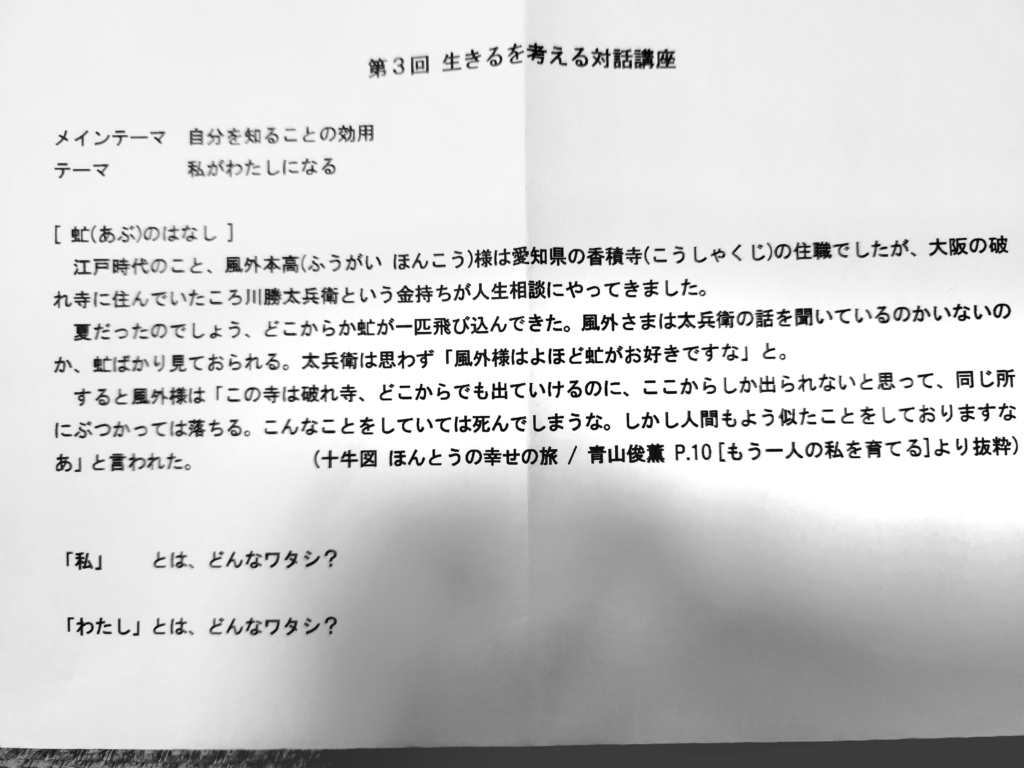 第3回 生きるを考える対話講座
メインテーマ 自分を知ることの効用
テーマ 私がわたしになる
[ 虻(あぶ)のはなし ]
江戸時代のこと、風外本高(ふうがい ほんこう)様は愛知県の香積寺(こうしゃくじ)の住職でしたが、大阪の破
れ寺に住んでいたころ川勝太兵衛という金持ちが人生相談にやってきました。
夏だったのでしょう、どこからか虻が一匹飛び込んできた。風外さまは太兵衛の話を聞いているのかいないの
か、虻ばかり見ておられる。太兵衛は思わず「風外様はよほど虻がお好きですな」と。
すると風外様は「この寺は破れ寺、どこからでも出ていけるのに、ここからしか出られないと思って、同じ所
にぶつかっては落ちる。こんなことをしていては死んでしまうな。しかし人間もよう似たことをしておりますな
あ」と言われた。 (十牛図 ほんとうの幸せの旅 / 青山俊董 P.10 [もう一人の私を育てる]より抜粋)
「私」 とは、どんなワタシ?
「わたし」とは、どんなワタシ?